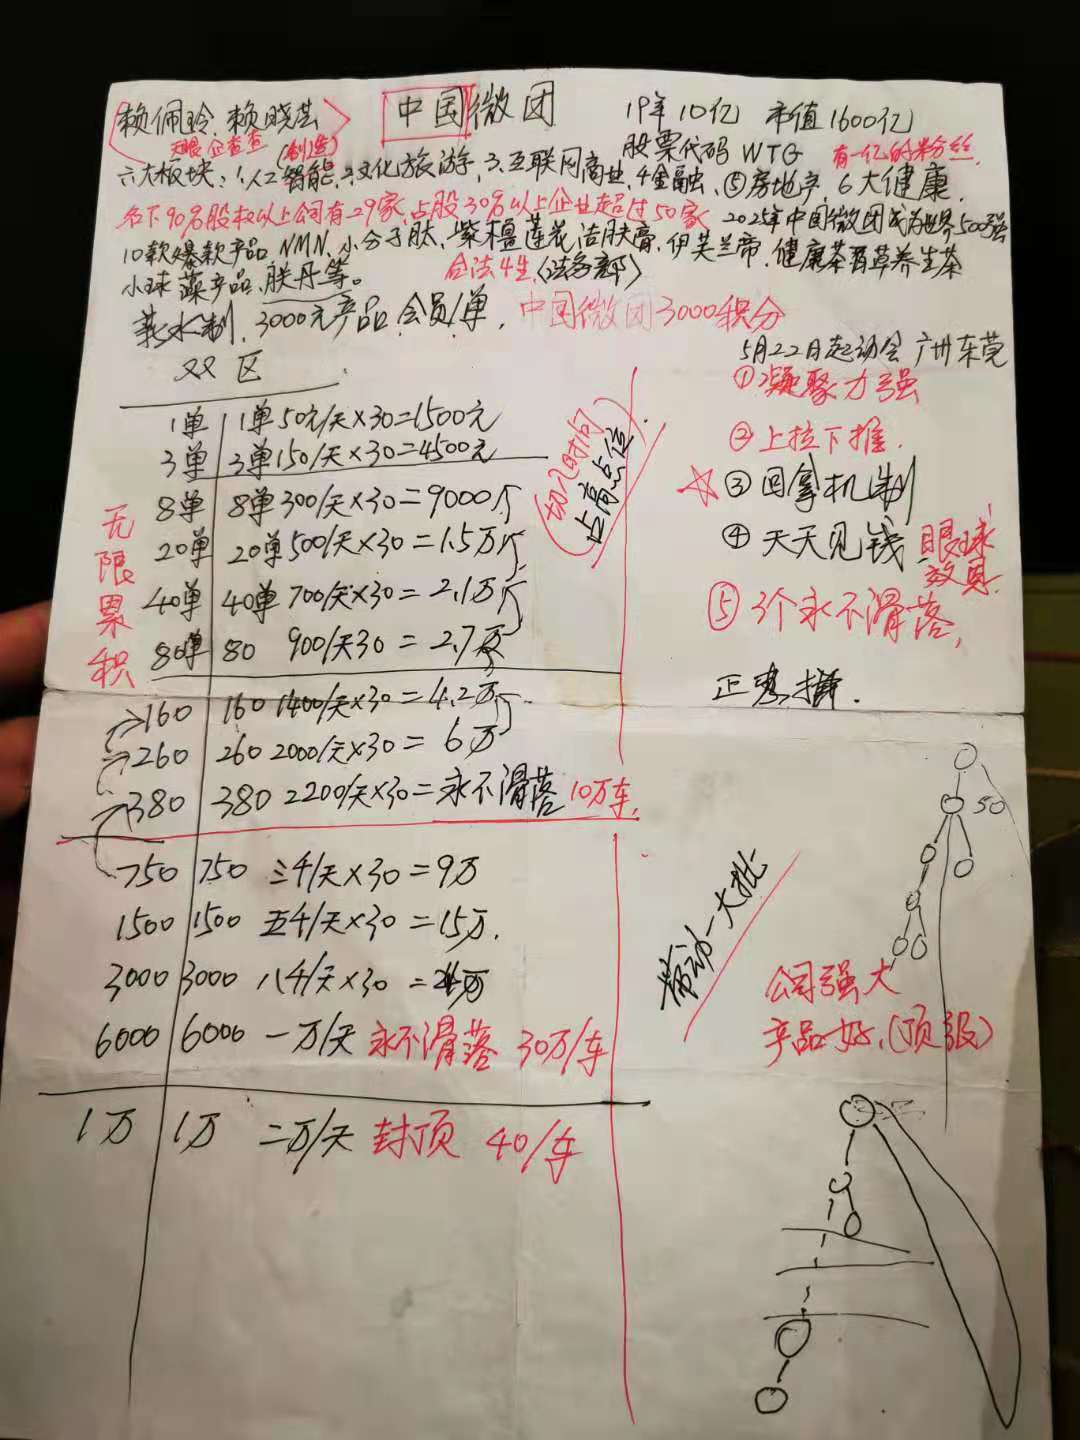 赖佩玲、赖晓芸 中国微团 19年10亿 市值1600亿
天眼企查查 (制造) 股票代码 WTG 有一亿的粉丝.
六大板块: 1.人工智能, 2.文化旅游, 3.互联网商业, 4金融、⑤房地产 6大健康.
名下90%股权以上公司有29家, 占股30%以上企业超过50家 2025年中国微团成为世界500强
10款爆款产品 NMN、小分子肽、紫檀莲花洁肤膏、伊芙兰帝、健康茶 百草养生茶
小球藻产品、肤丹等。 合法4生〈法务部〉
薪水制, 3000元产品 会员1单, 中国微团3000积分
5月22日起动会 广州东莞
双区
①凝聚力强
②上拉下推.
☆③回拿机制
④天天见钱 眼球效果.
⑤3个永不滑落,
切入时间
占高点位
无限累积
1单 1单50元/天×30=1500元
3单 3单150/天×30=4500元
8单 8单300/天×30=9000
20单 20单500/天×30=1.5万
40单 40单700/天×30=2.1万
80单 80 900/天30=2.7万
160 160 1400/天×30=4.2万
260 260 2000/天×30=6万
380 380 2200/天×30=永不滑落 10万车.
50
750 750 三千/天×30=9万
1500 1500 五千/天×30=15万.
3000 3000 八千/天×30=
6000 6000 一万/天 永不滑落 30万/车
带动一大批
公司强大
产品好、(顶级)
1万 1万 二万/天 封顶 40/车